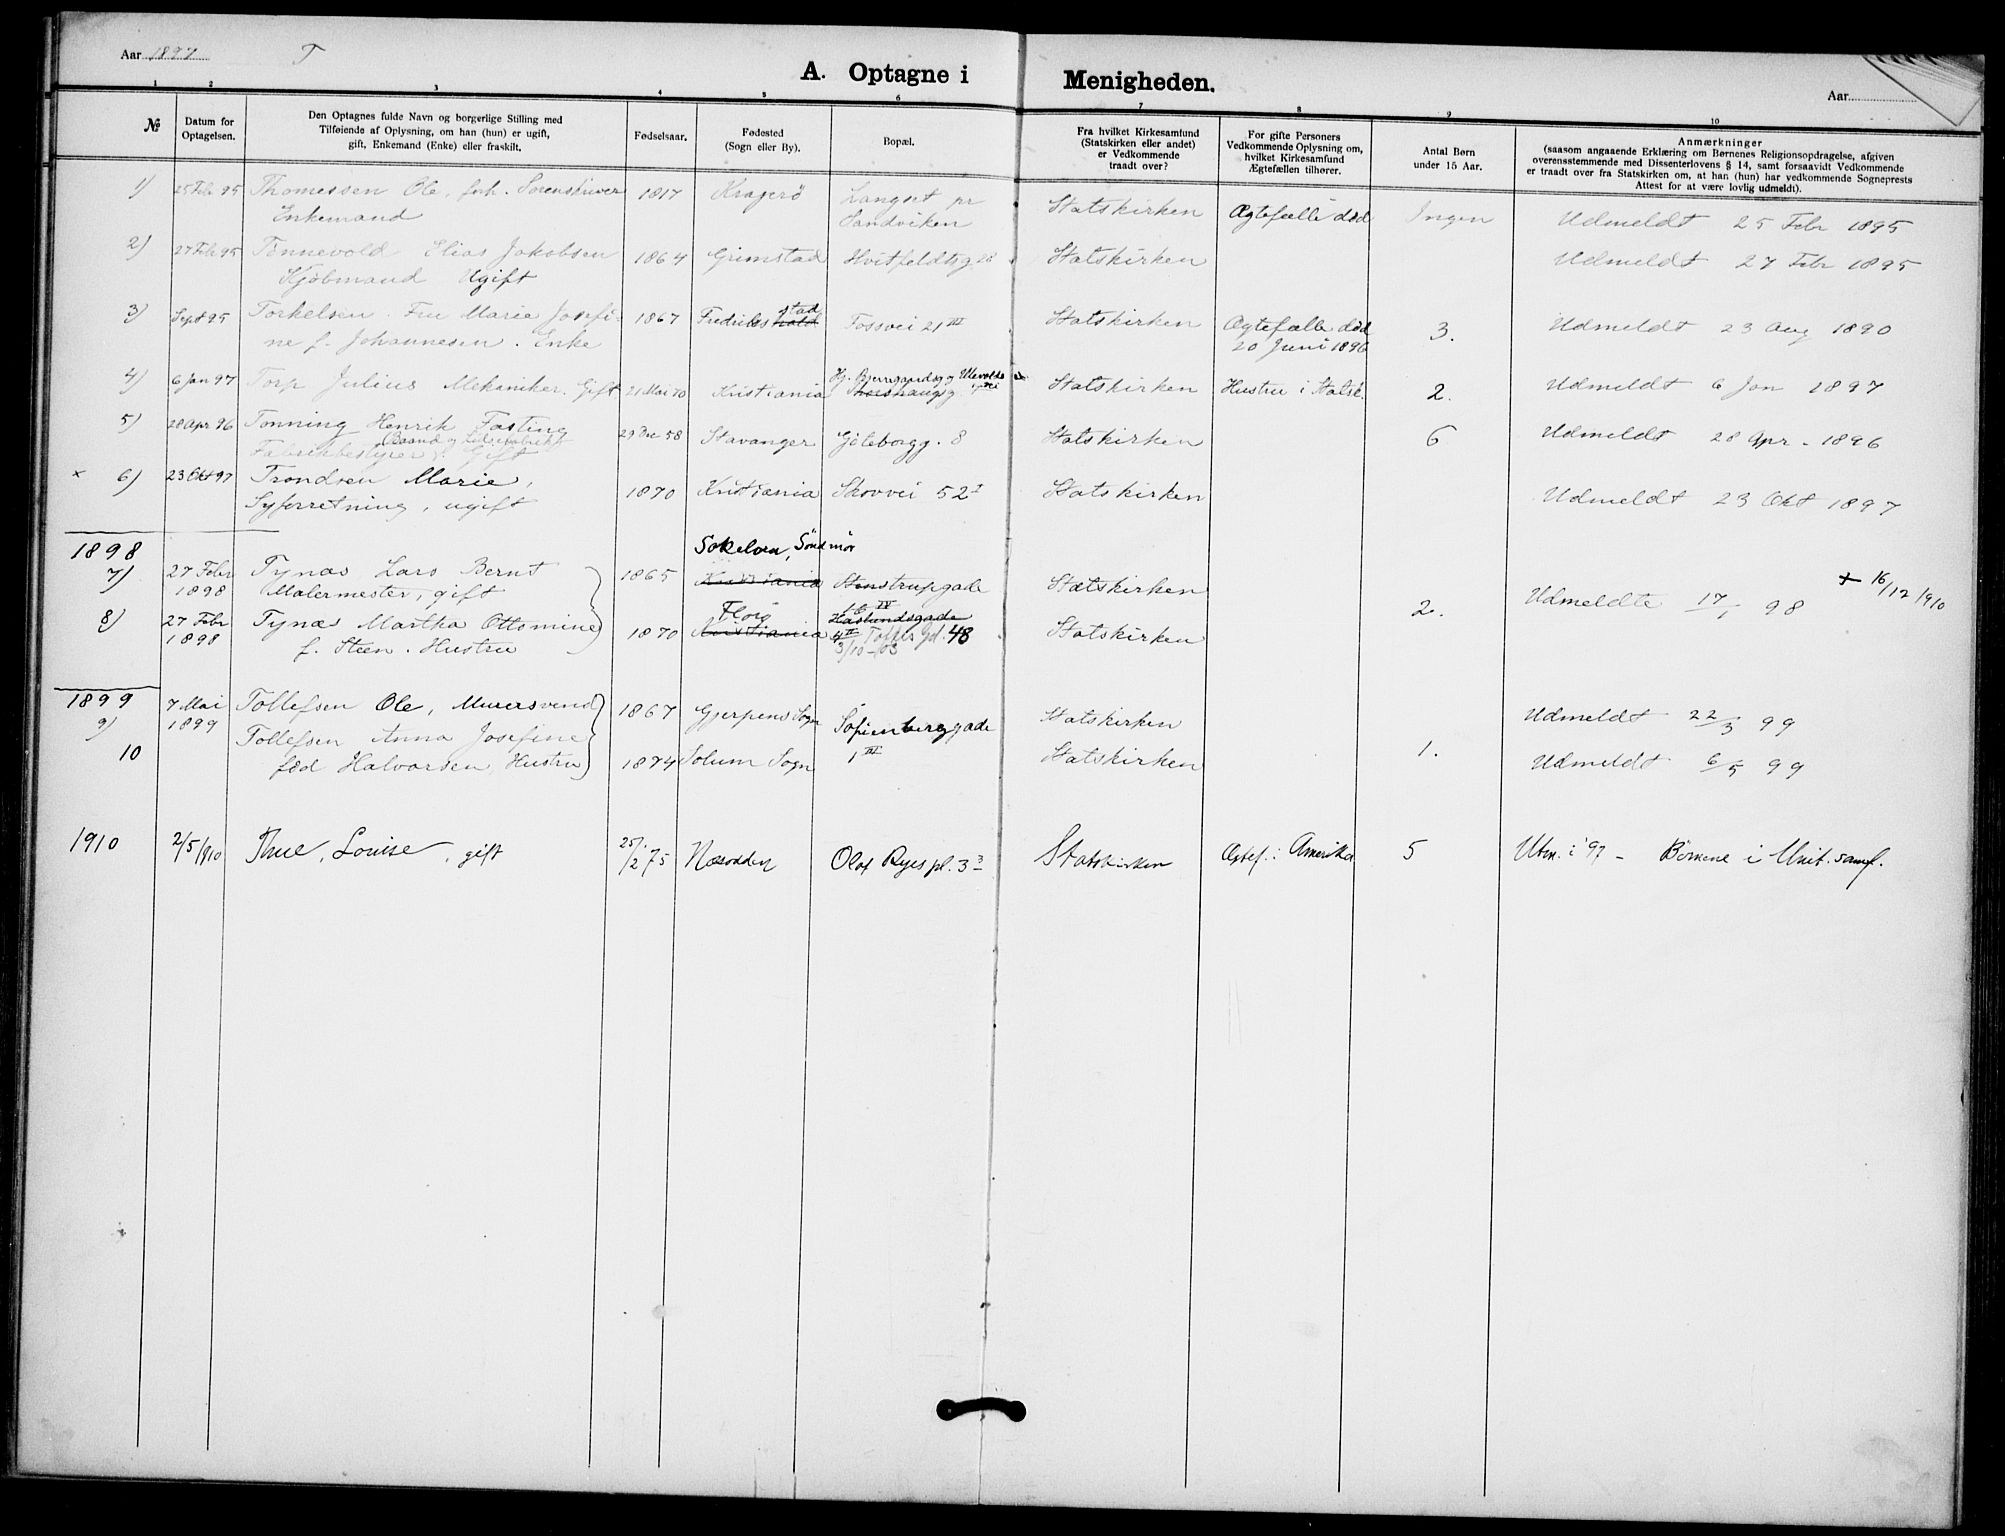 Aar 1897 T
A. Optagne i Menigheden.
Aar
1 2 3 4 5 6 7 8 9 10
№
Datum for
Optagelsen.
Den Optagnes fulde Navn og borgerlige Stilling med
Tilføiende af Oplysning, om han (hun) er ugift,
gift, Enkemand (Enke) eller fraskilt.
Fødselsaar.
Fødested
(Sogn eller By).
Bopæl.
Fra hvilket Kirkesamfund
(Statskirken eller andet)
er Vedkommende
traadt over?
For gifte Personers
Vedkommende Oplysning om,
hvilket Kirkesamfund
Ægtefællen tilhører.
Antal Børn
under 15 Aar.
Anmærkninger
(saasom angaaende Erklæring om Børnenes Religionsopdragelse, afgiven
overensstemmende med Dissenterlovens § 14, samt forsaavidt Vedkommende
er traadt over fra Statskirken om, at han (hun) har vedkommende Sogneprests
Attest for at være lovlig udmeldt).
1) 25 Febr 95 Thomessen Ole, fnh. Sorenskriver 1817 Kragerö Langset pr Statskirken Ægtefælle död Ingen Udmeldt 25 Febr 1895
Enkemand Sandviken
2) 27 Febr 95 Tönnevold Elias Jakobsen 1864 Grimstad Hvitfeldtsg 20 Statskirken Udmeldt 27 Febr 1895
Kjöbmand Ugift
3) Sept 95 Torkelsen Fru Marie Josefi- 1867 Fredriks hald stad Fossvei 21 III Statskirken Ægtefælle död 3. Udmeldt 23 Aug 1890
ne f. Johannesen. Enke 20 Juni 1896
Hj. Bjerregaardsg og Ullevolds
4) 6 Jan 97 Torp Julius Mekaniker. Gift 21 Mai 70 Kristiania Statskirken Hustru i Statsk. 2. Udmeldt 6 Jan 1897
5) 28 Apr 96 Tönning Henrik Fasting 29 Dec 58 Stavanger Göteborgg. 8 Statskirken 6 Udmeldt 28 Apr - 1896
Baand og Lidsefabrikk
Fabrikbestyrer Gift
× 6) 23 Okt 97 Trondsen Marie, 1870 Kristiania Skovvei 52 I Statskirken Udmeldt 23 Okt 1897
Syforretning, ugift
1898 Sökelven, Söndmör
7) 27 Febr Tynæs Lars Bernt 1865 Kristiania Stenstrupgade Statskirken + 16/12 1910
1898 Malermester, gift 2. Udmeldte 17/1 98
Florö
8) 27 Febr Tynæs Martha Ottomine 1870 Kristiania Haslundsgade Statskirken
1898 f. Steen. Hustru Toftes Gd. 48
3/10-03
1899
9) 7 Mai Tollefsen Ole, Murersvend 1867 Gjerpens Sogn Sofienberggade Statskirken Udmeldt 22/3 99
1899 Tollefsen Anna Josefine
10 föd Halvorsen Hustru 1874 Solum Sogn 1 IV Statskirken 1. Udmeldt 6/5 99
1910 2/5 1910 Thue, Louise, gift 25/2 75 Næsodden Olaf Ryes pl. 3 3 Statskirken Ægtef. i Amerika 5 Utm. i '97 - Börnene i Unit. samf.